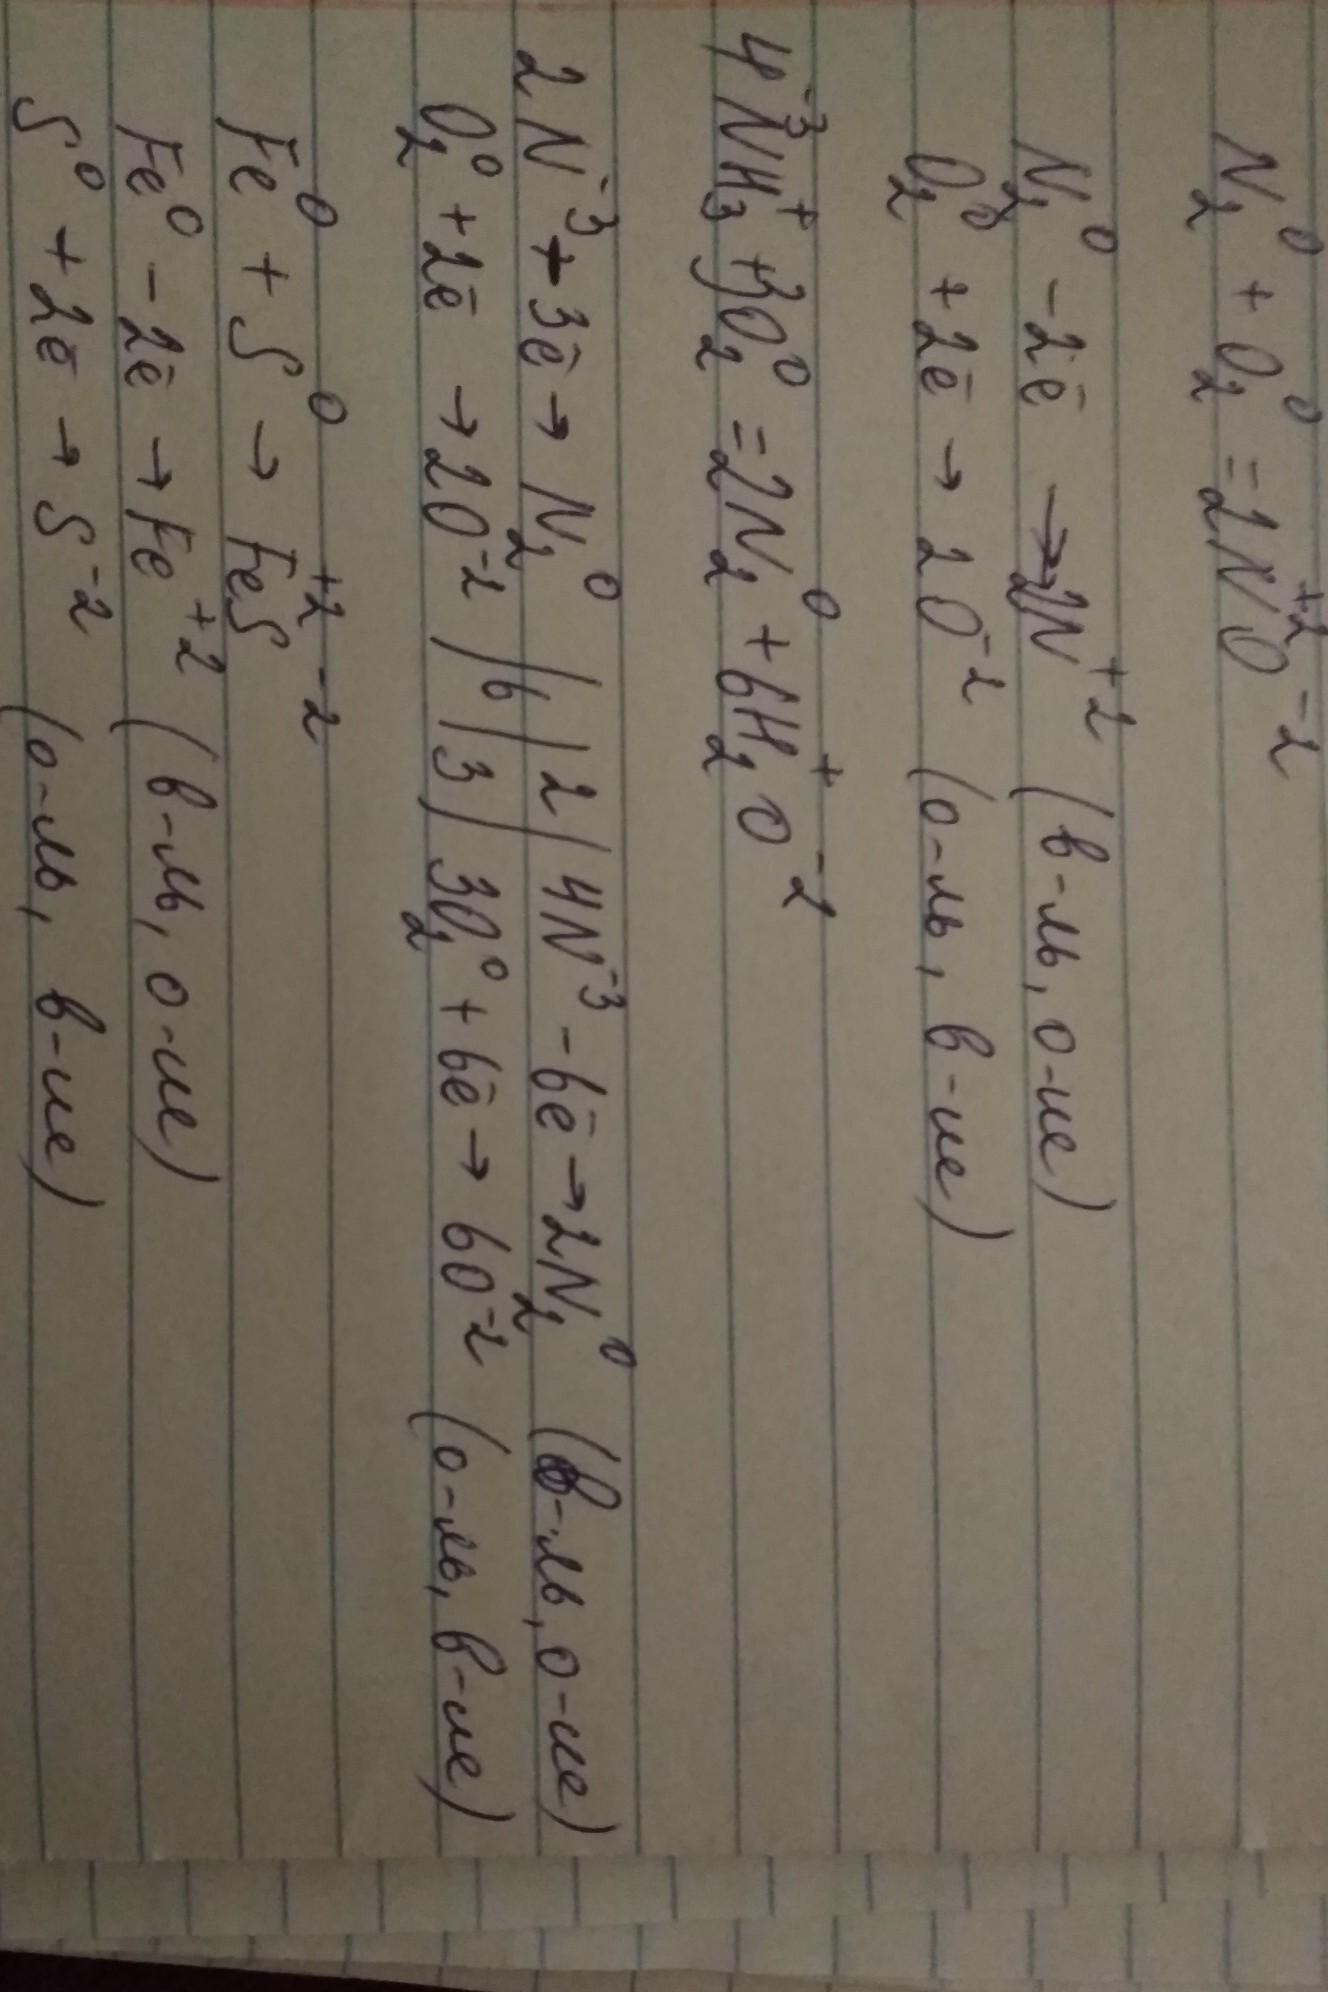 N₂⁰ + O₂⁰ = 2N⁺²O⁻²
N₂⁰ - 2ē → 2N⁺² (в-ль, о-ие)
O₂⁰ + 2ē → 2O⁻² (о-ль, в-ие)
4N⁻³H₃⁺ + 3O₂⁰ = 2N₂⁰ + 6H₂⁺O⁻²
2N⁻³ - 3ē → N₂⁰ | 6 | 2 | 4N⁻³ - 6ē → 2N₂⁰ (в-ль, о-ие)
O₂⁰ + 2ē → 2O⁻² | | 3 | 3O₂⁰ + 6ē → 6O⁻² (о-ль, в-ие)
Fe⁰ + S⁰ → Fe⁺²S⁻²
Fe⁰ - 2ē → Fe⁺² (в-ль, о-ие)
S⁰ + 2ē → S⁻² (о-ль, в-ие)